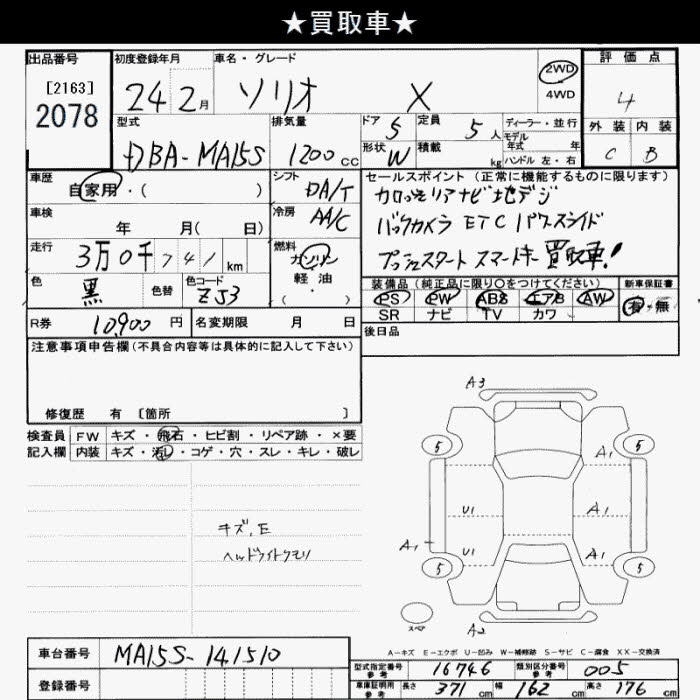 ★買取車★
出品番号 初度登録年月 車名・グレード 2WD 4WD 評価点
[2163]
2078
24 2月 ソリオ X 4
型式 排気量 ドア 5 定員 5人 ディーラー・並行 外装 内装
モデル年式 年
DBA-MA15S 1200cc 形状 W 積載 kg ハンドル 左・右 C B
車歴 自家用・( ) シフト DA/T セールスポイント(正常に機能するものに限ります)
カロッツェリアナビ地デジ
車検 年 月( 日) 冷房 AA/C バックカメラ ETC パワースライド
走行 3万0千741km 燃料 ガソリン 軽油 (・) プッシュスタート スマートキー 買取車!
色 黒 色替 色コード ZJ3 装備品(純正品に限り○をつけてください) 新車保証書
PS PW ABS エアB AW 有・無
SR ナビ TV カワ
R券 10,900円 名変期限 月 日 後日品
注意事項申告欄(不具合内容等は具体的に記入して下さい)
修復歴 有 [箇所 ]
検査員 FW キズ・飛石・ヒビ割・リペア跡・×要
記入欄 内装 キズ・汚れ・コゲ・穴・スレ・キレ・破レ
キズ,E
ヘッドライトクモリ
A3
5 5
A1
U1 A1
A1 U1 A1
5 5
スペア A2
A-キズ E-エクボ U-凹み W-補修跡 S-サビ C-腐食 XX-交換済
車台番号 MA15S-141510 型式指定番号 参考 16746 類別区分番号 参考 005
登録番号 車庫証明用 参考 長さ 371cm 幅 162cm 高さ 176cm